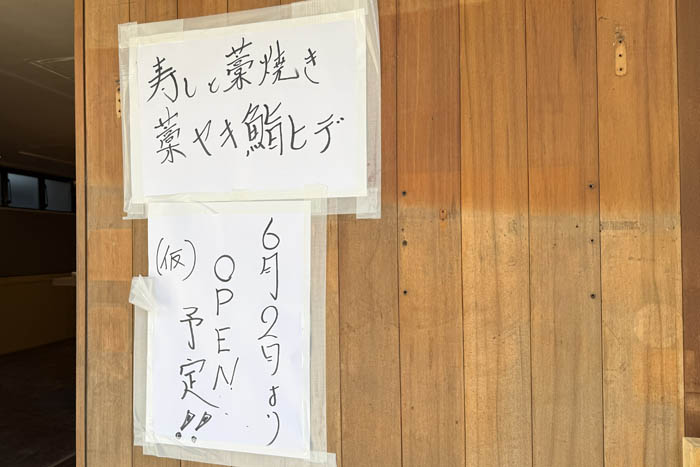 寿しと藁焼き
藁ヤキ鮨ヒデ
6月2日より
OPEN!
予定!!
(仮)